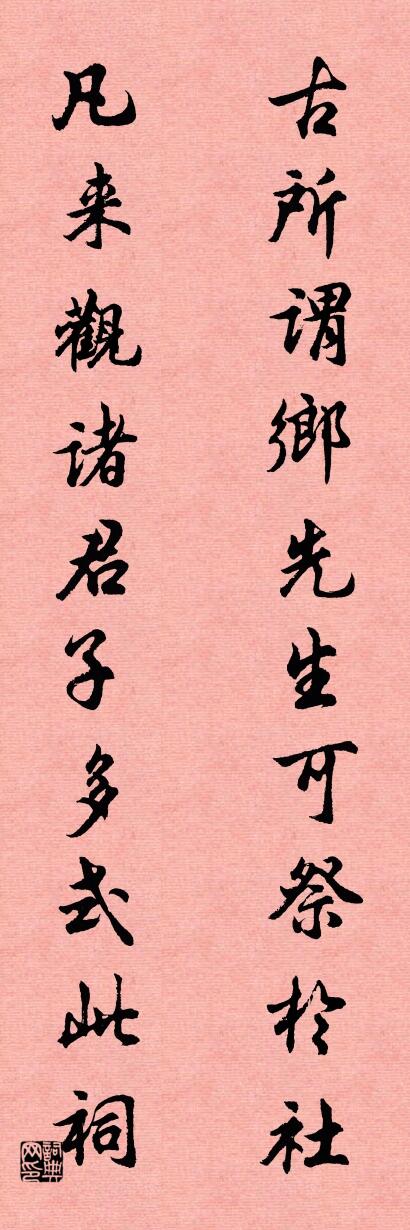 古所谓鄉先生可祭於社
凡来觀诸君子多式此祠
詞典网印